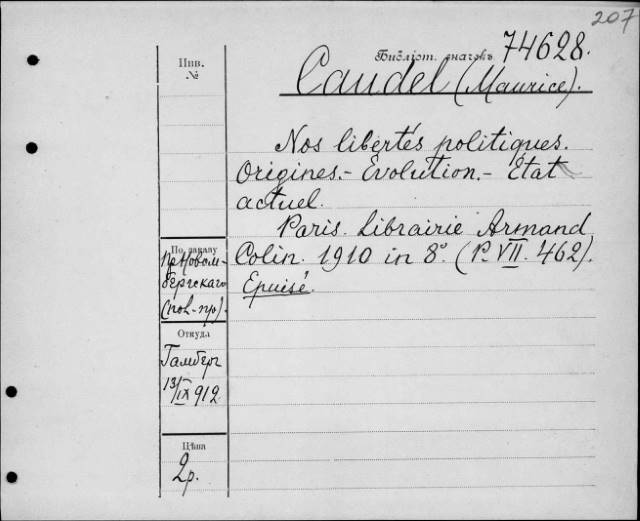 207
Инв.
№
Библіот. значекъ 74628.
Caudel (Maurice).
Nos libertés politiques.
Origines.- Évolution.- État
actuel.
Paris. Librairie Armand
Colin. 1910 in 8°. (P. VII. 462).
Epuisé.
По заказу
пр. Новом-
бергскаго
(пол-пр).
Откуда
Гамберг
13/IX 912
Цѣна
2р.